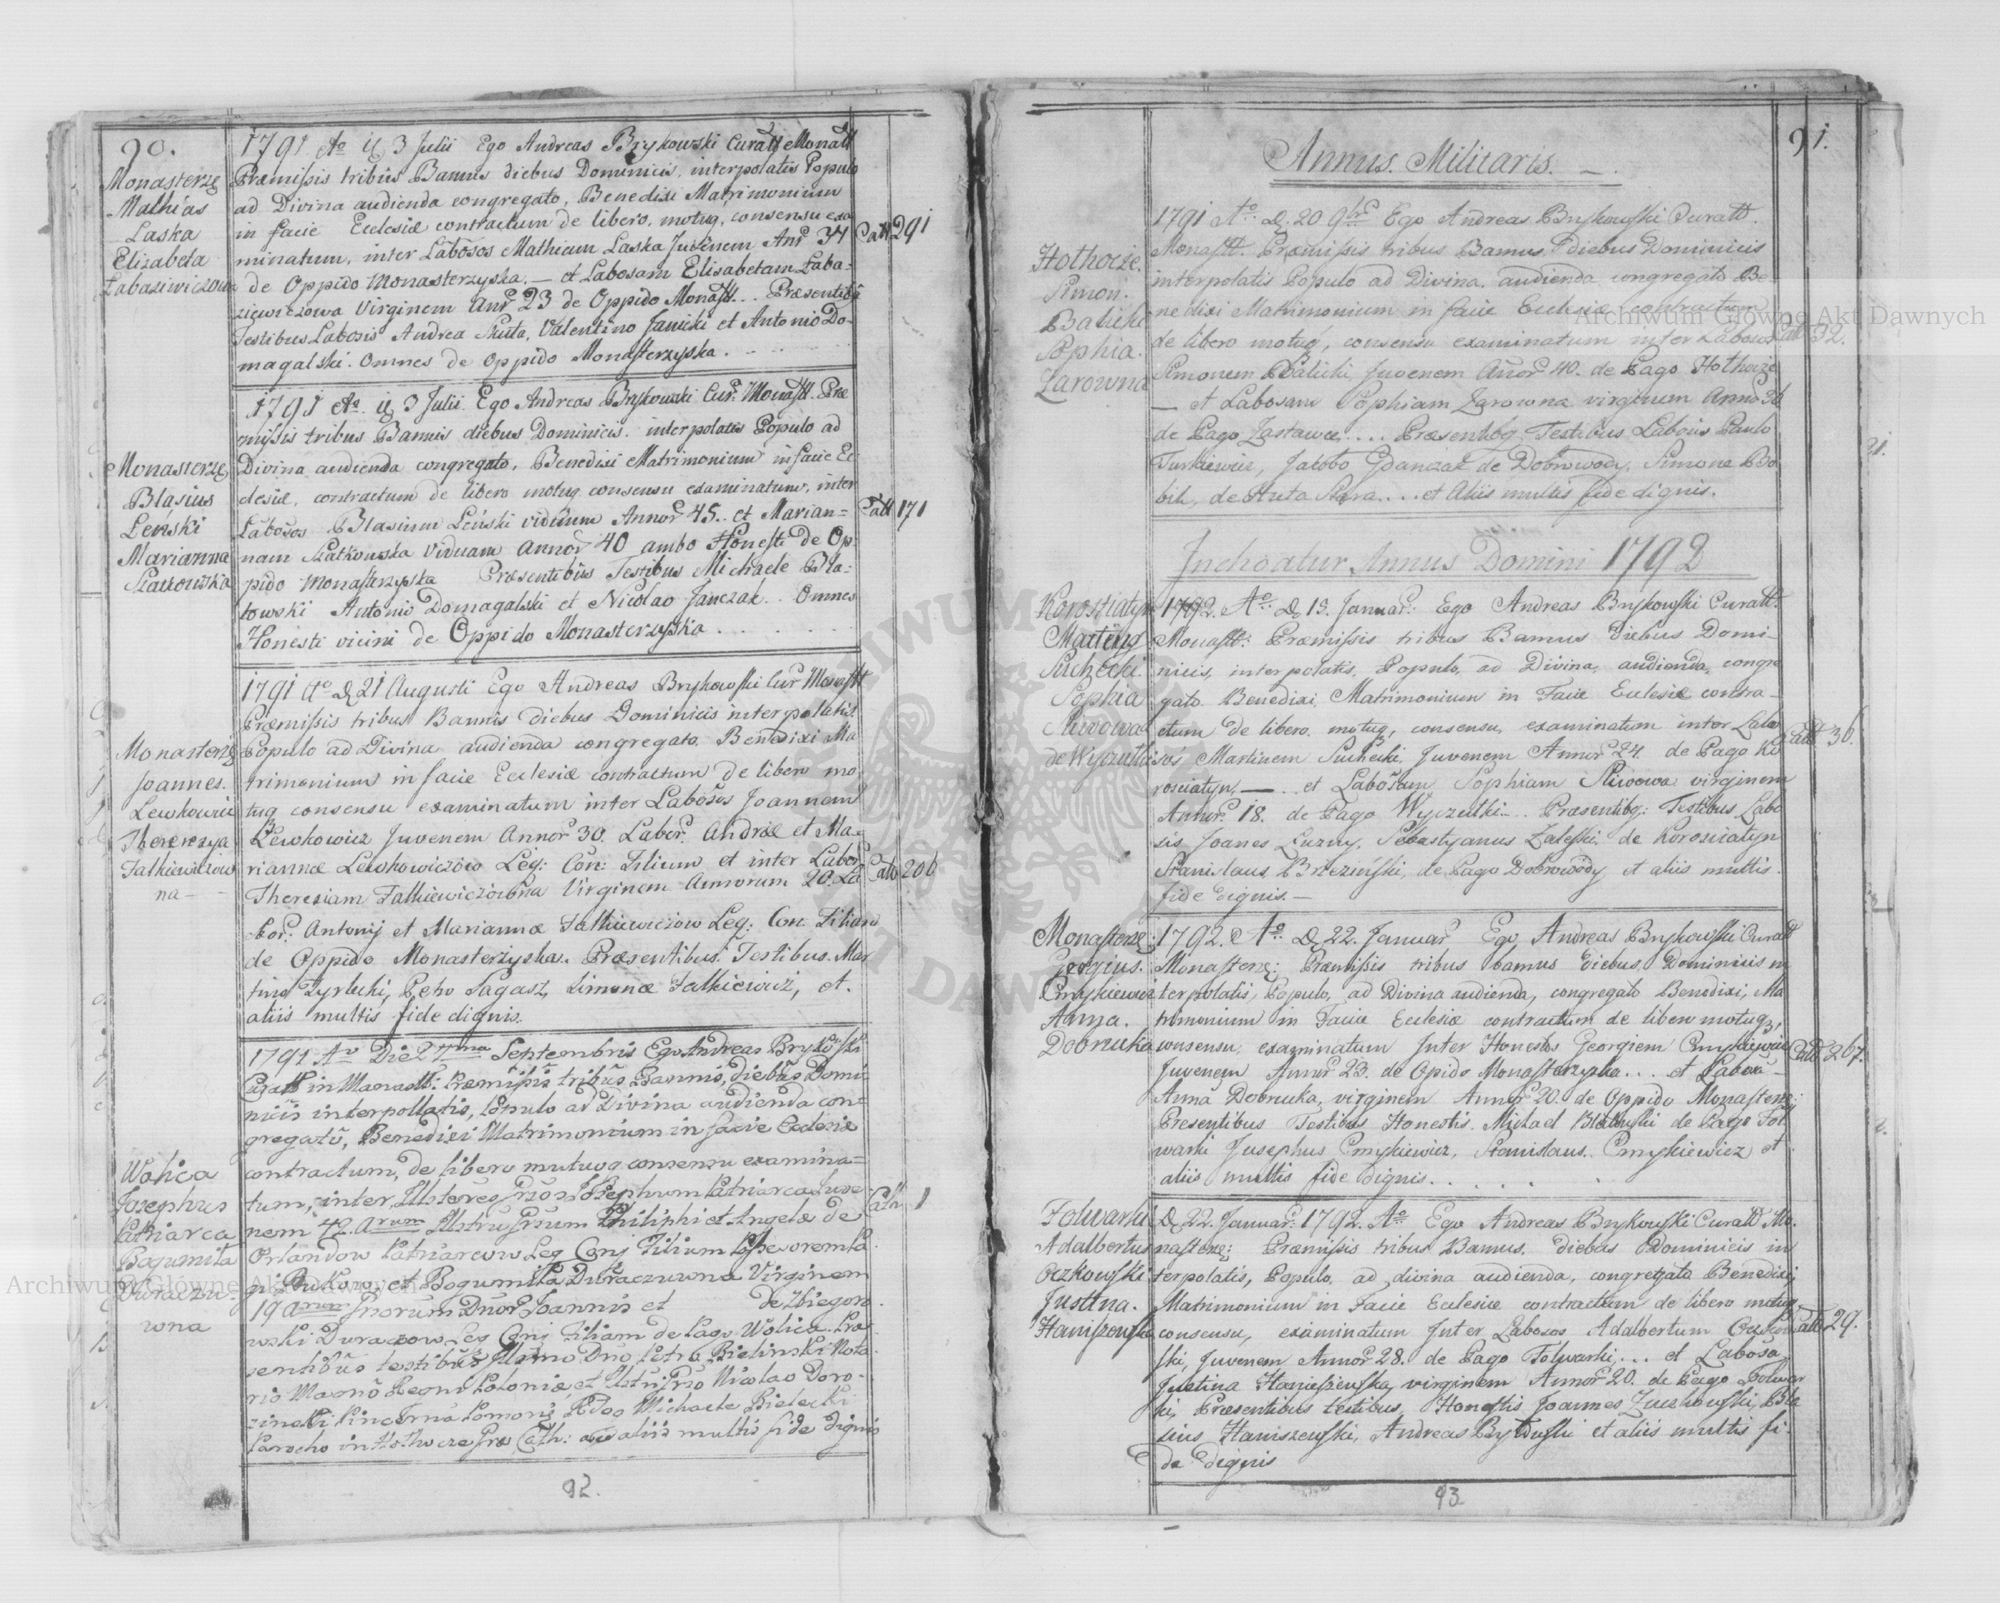 90.
Monasterzę
Mathias
Laska
Elizabeta
Łabasiwiczowa
1791 Ao d 3 Julii Ego Andreas Brykowski Curatt Monastt
Præmissis tribus Bannis diebus Dominicis, interpolatis Populo
ad Divina audienda congregato, Benedixi Matrimonium
in facie Ecclesiæ contractum de libero, motuq, consensu exa
minatum, inter Labosos Mathiam Laska Juvenem Anr 34
de Oppido Monasterzyska, — et Labosam Elisabetam Łaba-
ziewiczowa Virginem Anr 23 de Oppido Monastt... Præsentibs
Testibus Labosis Andrea Skuta, Valentino Janicki et Antonio Do-
magalski. Omnes de Oppido Monasterzyska.
Catt 291
1791 Ao. d 3 Julii. Ego Andreas Brykowski Cur. Monastt. Præ
missis tribus Bannis diebus Dominicis. interpolatis Populo ad
Divina audienda congregato, Benedixi Matrimonium in facie Ec
clesiæ, contractum de libero motuq consensu examinatum, inter
Labosos Blasium Leński viduum Annor 45. et Marian=
nam Szatkowska Viduam Annor 40 ambo Honesti de Op
pido Monasterzyska Præsentibus Testibus Michaele Bla-
towski Antonio Domagalski et Nicolao Janczak.. Omnes
Honesti vicini de Oppido Monasterzyska
Monasterzę
Blasius
Lenski
Marianna
Catt 171
1791 Ao D 21 Augusti Ego Andreas Brykowski Cur Monastt
Præmissis tribus Bannis diebus Dominicis interpolatis
Populo ad Divina audienda congregato Benedixi Ma
trimonium in facie Ecclesiæ contractum de libero mo,
tuq consensu examinatum inter Labosos Joannem
Lewkowicz Juvenem Annor 30. Labor. Andræ et Ma-
riannæ Lewkowiczow Leg: Con: Filium et inter Labor
Theresiam Falkiewiczowna Virginem Annorum 20. La
bor: Antonij et Mariannæ Falkiewiczow Leg: Con: Filiam
de Oppido Monasterzyska. Præsentibus. Testibus. Mar
tino Zyrlicki, Petro Sagasz, Simonæ Falkiewicz, et.
aliis multis fide dignis.
Monasterzę
Joannes.
Lewkowicz
Therereya
Falkiewiczow
na —
Catt 200
1791 Ao Die 27ma Septembris Ego Andreas Brykowski
Curatt in Monastt: Præmissis tribus Bannis, diebus Domi
nicis interpollatis, Populo ad Divina audienda con=
gregato, Benedixi Matrimonium in facie Ecclesiæ
contractum, de libero mutuoq consensu examina=
tum, inter Illstres Josephum Patriarca Juve
nem 42 Arum Philiphi et Angelæ de
Orlandow Patriarcow Leg Conj Filium
et Bogumila Duraczowna Virginem
19 Joannis et de Zbiegoro
wski Duraczow Leg Conj Filiam de Pago Wolica. Præ
sentibus testibus Petro Bielinski Nota
rio et Nicolao Doro-
Michaele Bielecki
Parocho in Hothocze aliis multis fide dignis
Wolica
Josephus
Patriarca
Bogumila
Duraczu-
wna
Cata 1
92.
91.
Annus. Militaris. —.
1791 Ao: D, 20 9bri Ego Andreas Brykowski Curatt.
Monastt. Præmissis tribus Bannus, diebus Dominicis
interpolatis Populo ad Divina, audienda congregato Be-
nedixi Matrimonium in facie Eclesiæ contractum
de libero motuq, consensu examinatum inter Labosos
Simonem Balicki, Juvenem Anor 40. de Pago Hothocze
— et Labosam Sophiam Zarowna virginem Anno 36
de Pago Zastawce,.... Præsentibq Testibus Labosis Paulo
Turkiewicz, Jacobo de Dobrowody. Simone Bo
bik, de Huta Stara.... et Aliis multis fide dignis.
Hothocze.
Simon.
Balicki
Sophia.
Zarowna
Catt 32.
Inchoatur Annus Domini 1792
1792. Ao: D, 15. Januar: Ego Andreas Brykowski Curatt:
Monastt: Præmissis tribus Bannus diebus Domi-
nicis, interpolatis, Populo, ad Divina, audienda, congre
gato Benedixi, Matrimonium in Facie Eclesiæ contra-
ctum de libero motuq, consensu, examinatum inter Labo
sos Martinem Suchecki, Juvenem Annor 24 de Pago Ko
rosciatyn, —.. et Labosam Sophiam Sliwowa virginem
Annor. 18. de Pago Wyczulki... Præsentibq: Testibus Labo
sis, Joanes Luzny, Sebastyanus Zaleski, de Korosciatyn
Stanislaus Brzezinski, de Pago Dobrowody et aliis multis
fide dignis. —
Korosciatyn
Martinq
Suchecki.
Sophia
Sliwowa
de Wyczulki
Catt 36.
1792. Ao: D, 22. Januar. Ego, Andreas Brykowski Curatt
Monasterzę: Præmissis tribus bamus diebus, Dominicis in
terpolatis, Populo, ad Divina audienda, congregato Benedixi, Ma
trimonium in Facie Eclesiæ contractum de libero motuq,
consensu, examinatum Inter Honestos Georgiem Cmykiewicz
Juvenem Annor 23. de Opido Monasterzyska... et Labosa-
Anna Dobrucka, virginem Annor 20. de Oppido Monasterzę:
Presentibus Testibus Honestis. Michael de Pago Fol
warki Jusephus Cmykiewicz, Stanislaus. Cmykiewicz et
aliis multis fide dignis.
Monasterzę:
Georgius.
Cmykiewicz
Anna.
Dobrucka
Catt 267.
D, 22. Januar: 1792. Ao Ego Andreas Brykowski Curatt Mo.
nasterzę: Præmissis tribus Bamus. diebus Dominicis in
terpolatis, Populo, ad divina audienda, congregato Benedixi
Matrimonium in Facie Eclesiæ contractum de libero motuq
consensu, examinatum Inter Labosos Adalbertum Oczkow
ski, Juvenem Annor 28. de Pago Folwarki,... et Labosa
Justina Haniszewska, virginem Annor 20. de Pago Folwar
ki, Præsentibus testibus, Honestis Joannes Zuchowski, Bla
sius Haniszewski, Andreas et aliis multis fi-
de dignis
Folwarki
Adalbertus
Oczkowski
Justina.
Haniszewska
Catt 29.
93
Archiwum Główne Akt Dawnych
Archiwum Główne Akt Dawnych